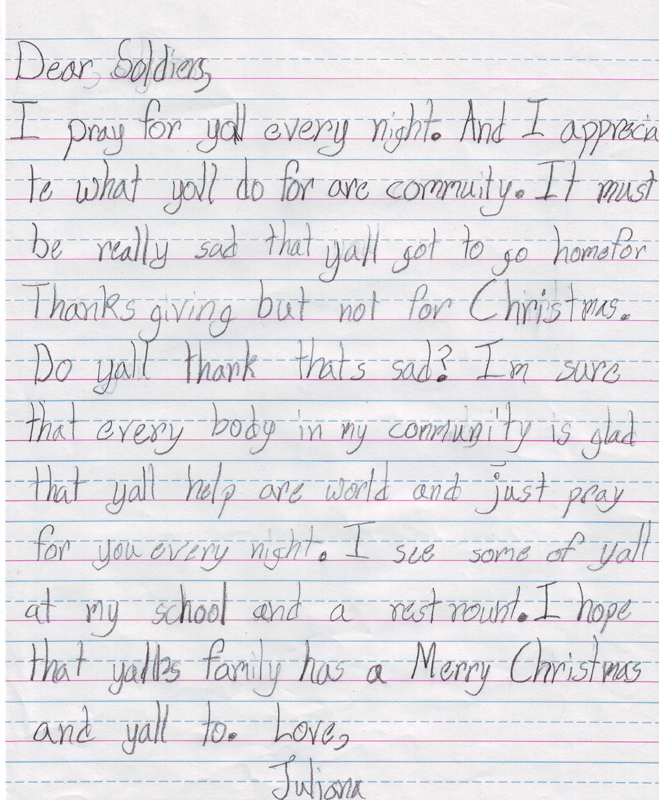 Dear, Soldiers,
I pray for yall every night. And I apprecia
te what yall do for are commuity. It must
be really sad that yall got to go homefor
Thanks giving but not for Christmas.
Do yall thank thats sad? Im sure
that every body in my community is glad
that yall help are world and just pray
for you every night. I see some of yall
at my school and a rest rount. I hope
that yalls family has a Merry Christmas
and yall to. Love,
Juliana